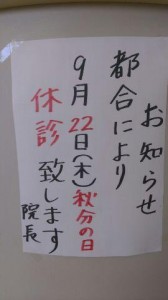 お知らせ
都合により
9月22日(木)秋分の日
休診致します
院長